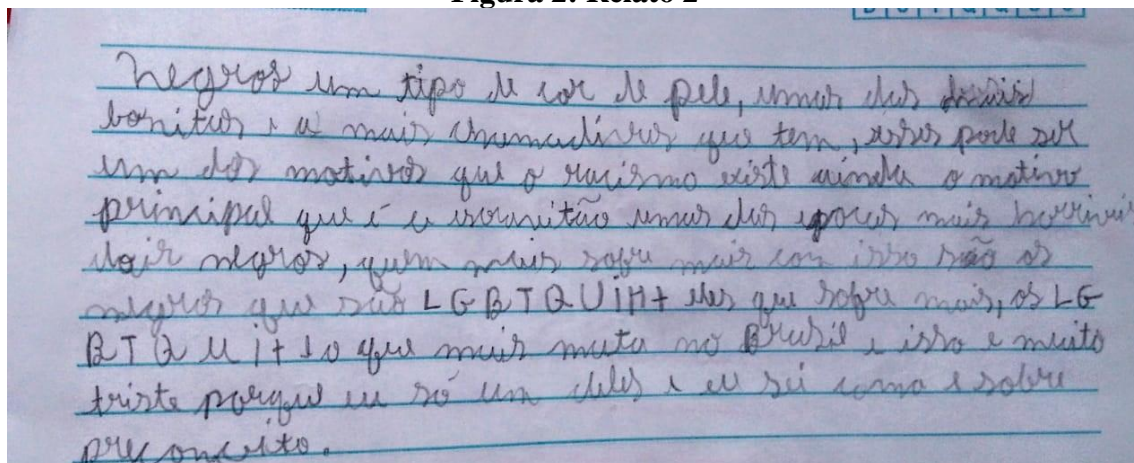 Figura 2: Relato 2
Negros um tipo de cor de pele, umas das
bonitas e a mais chamadívas que tem, esses pode ser
um dos motivos que o racismo existe ainda o motivo
principal que é a escravitão umas das epocas mais horriveis
negros, quem mais sofre mais con isso são os
negros que são LGBTQUiH+ eles que sofre mais, os LG
BTQUi+ to que mais mata no Brasil e isso e muito
triste porque eu só um deles e eu sei como e sobre
preconceito.